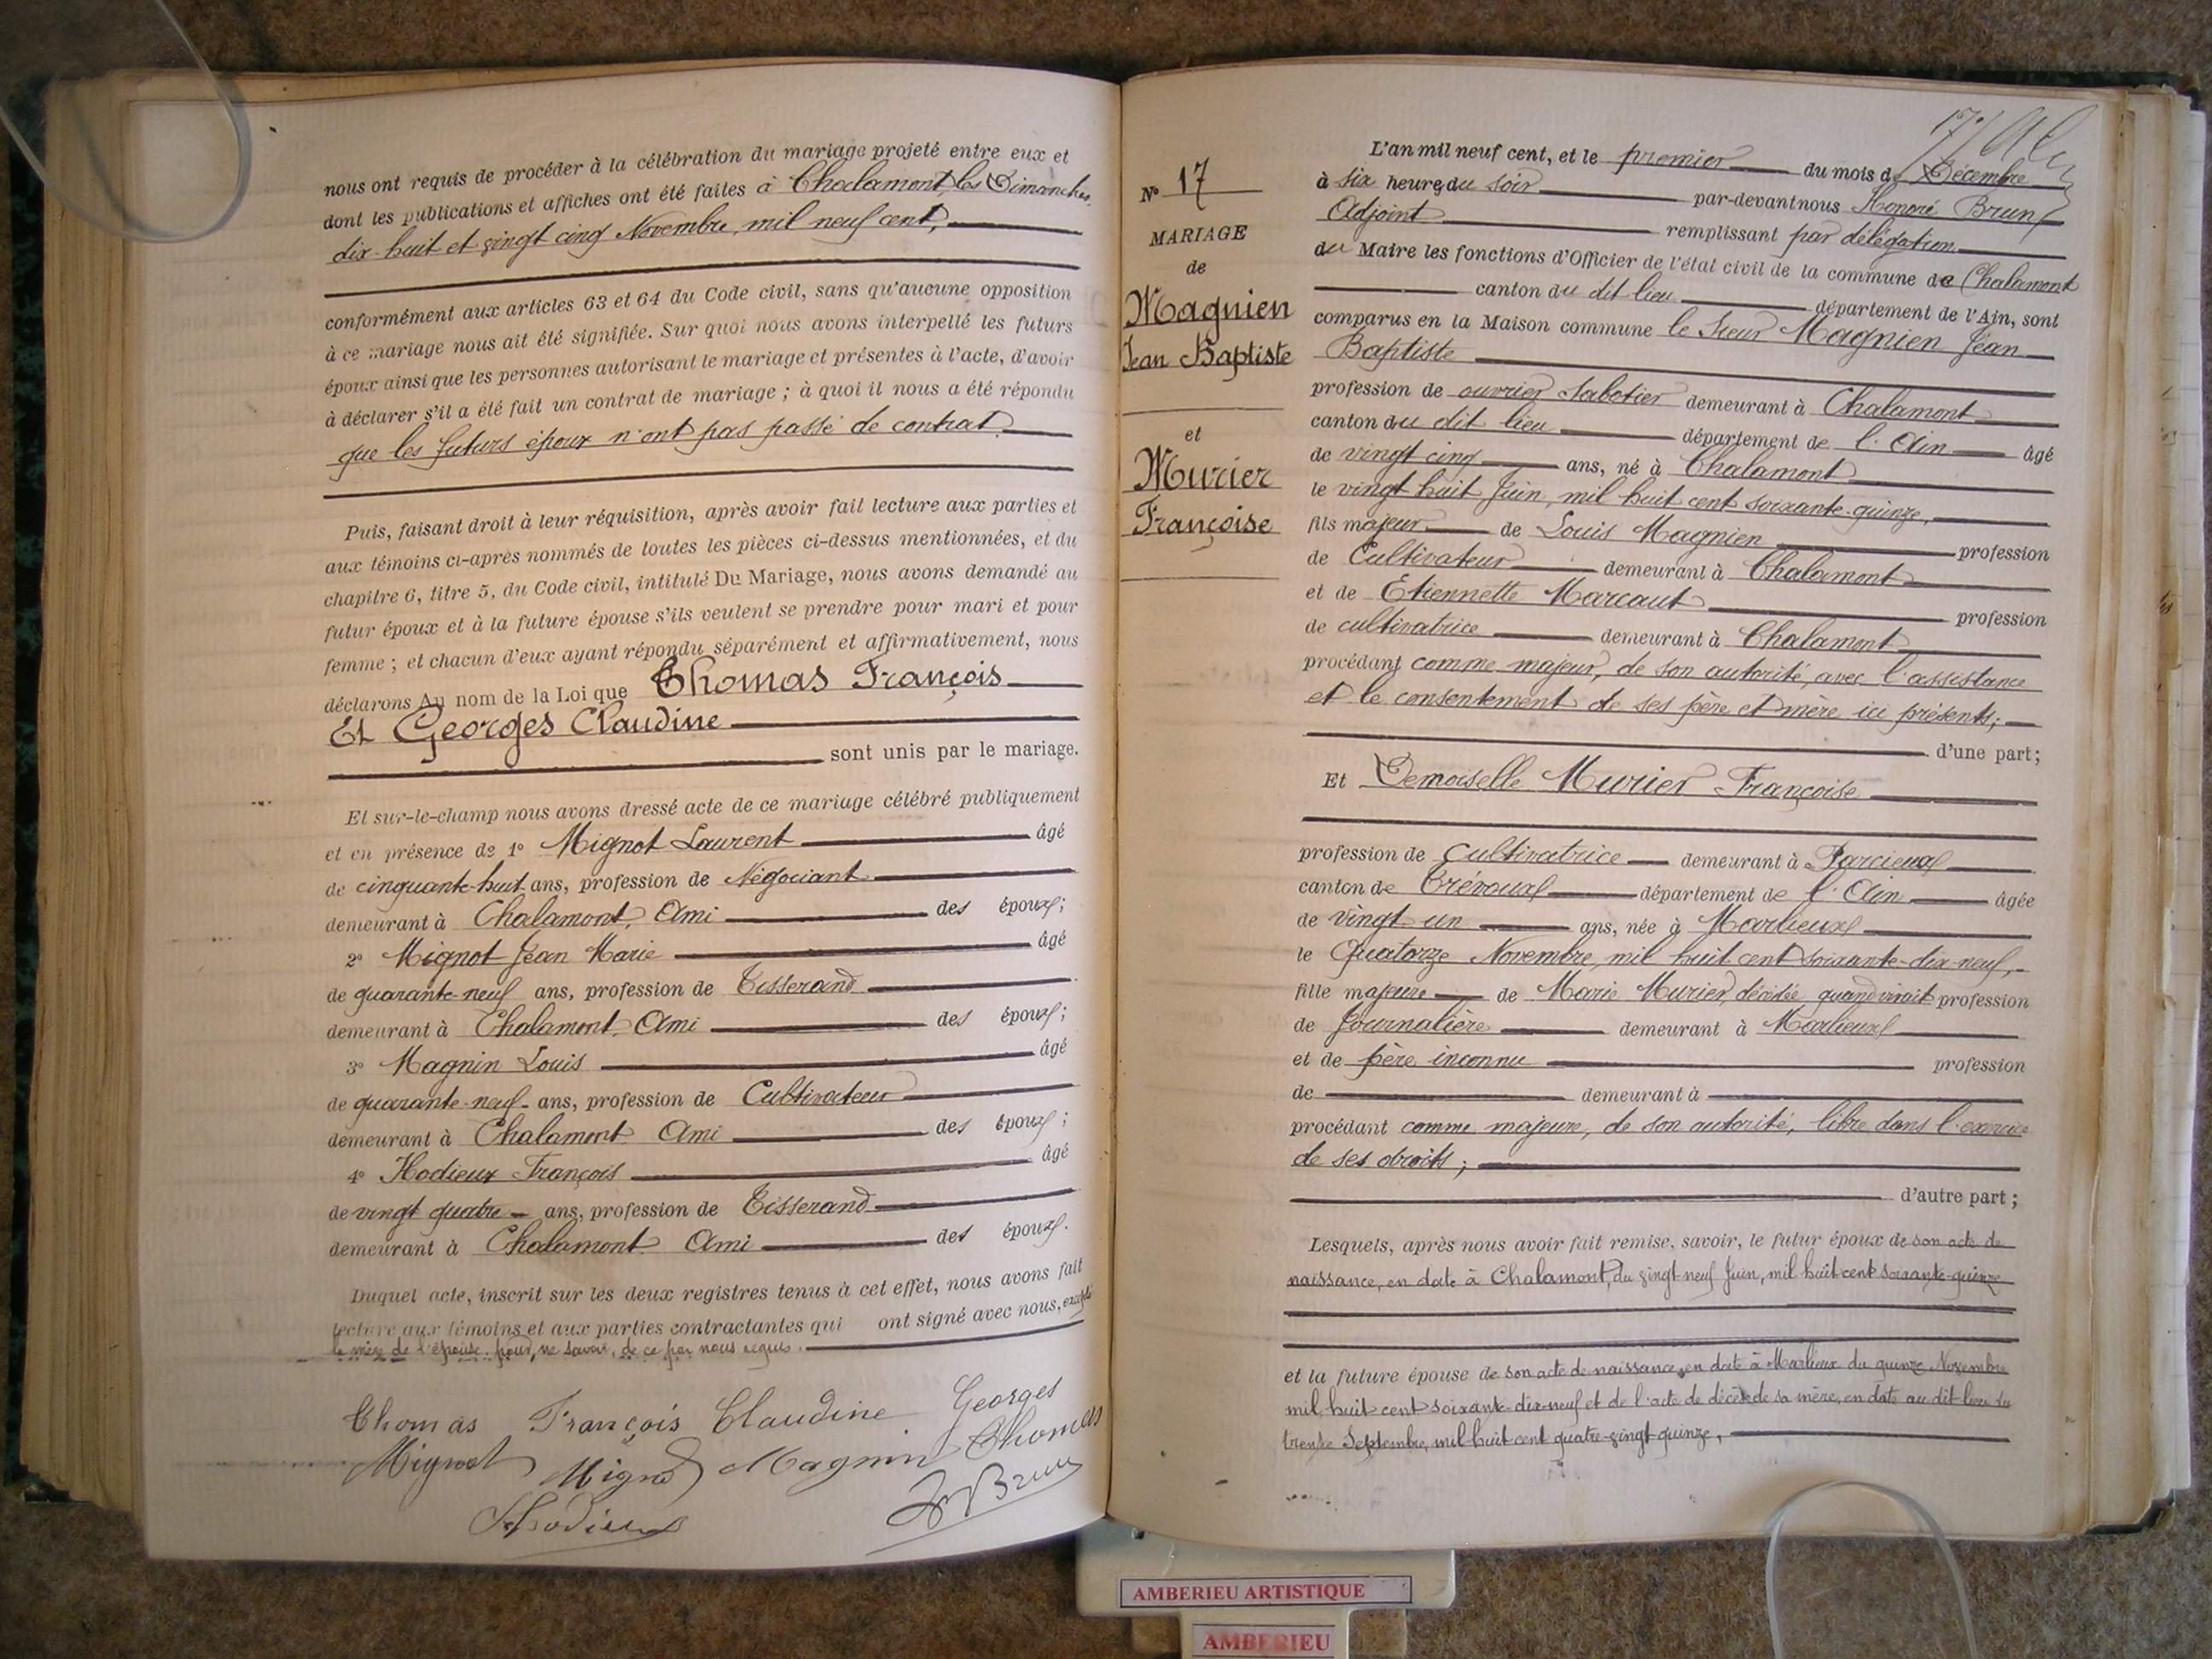 nous ont requis de procéder à la célébration du mariage projeté entre eux et
dont les publications et affiches ont été faites à Chalamont, les Dimanches,
dix-huit et vingt cinq Novembre, mil neuf cent,
conformément aux articles 63 et 64 du Code civil, sans qu'aucune opposition
à ce mariage nous ait été signifiée. Sur quoi nous avons interpellé les futurs
époux ainsi que les personnes autorisant le mariage et présentes à l'acte, d'avoir
à déclarer s'il a été fait un contrat de mariage ; à quoi il nous a été répondu
que les futurs époux n'ont pas passé de contrat.
Puis, faisant droit à leur réquisition, après avoir fait lecture aux parties et
aux témoins ci-après nommés de toutes les pièces ci-dessus mentionnées, et du
chapitre 6, titre 5, du Code civil, intitulé Du Mariage, nous avons demandé au
futur époux et à la future épouse s'ils veulent se prendre pour mari et pour
femme ; et chacun d'eux ayant répondu séparément et affirmativement, nous
déclarons Au nom de la Loi que Thomas François
Et Georges Claudine
sont unis par le mariage.
Et sur-le-champ nous avons dressé acte de ce mariage célébré publiquement
et en présence de 1° Mignot Laurent âgé
de cinquante-huit ans, profession de Négociant
demeurant à Chalamont, Ami des époux ;
2° Mignot Jean Marie âgé
de quarante-neuf ans, profession de Tisserand
demeurant à Chalamont, Ami des époux ;
3° Magnin Louis âgé
de quarante-neuf ans, profession de Cultivateur
demeurant à Chalamont Ami des époux ;
4° Hodieux François âgé
de vingt quatre ans, profession de Tisserand
demeurant à Chalamont Ami des époux.
Duquel acte, inscrit sur les deux registres tenus à cet effet, nous avons fait
lecture aux témoins et aux parties contractantes qui ont signé avec nous, excepté
la mère de l'épouse, pour ne savoir, de ce par nous requis.
Thomas François Claudine Georges
Mignot Mignot Magnin Thomas
Hodieux Brun
N° 17
MARIAGE
de
Magnien
Jean Baptiste
et
Murier
Françoise
17
L'an mil neuf cent, et le premier du mois de Décembre
à six heures du soir par-devant nous Honoré Brun
Adjoint remplissant par délégation
du Maire les fonctions d'Officier de l'état civil de la commune de Chalamont
canton du dit lieu département de l'Ain, sont
comparus en la Maison commune le Sieur Magnien Jean
Baptiste
profession de ouvrier Sabotier demeurant à Chalamont
canton du dit lieu département de l'Ain âgé
de vingt cinq ans, né à Chalamont
le vingt huit Juin, mil huit cent soixante-quinze,
fils majeur de Louis Magnien profession
de Cultivateur demeurant à Chalamont
et de Etiennette Marcaut profession
de cultivatrice demeurant à Chalamont
procédant comme majeur, de son autorité, avec l'assistance
et le consentement de ses père et mère ici présents ;
d'une part ;
Et Demoiselle Murier Françoise
profession de Cultivatrice demeurant à Parcieux
canton de Trévoux département de l'Ain âgée
de vingt un ans, née à Marlieux
le Quatorze Novembre, mil huit cent soixante-dix-neuf,
fille majeure de Marie Murier, décédée, quand vivait profession
de Journalière demeurant à Marlieux
et de père inconnu profession
de demeurant à
procédant comme majeure, de son autorité, libre dans l'exercice
de ses droits ;
d'autre part ;
Lesquels, après nous avoir fait remise, savoir, le futur époux de son acte de
naissance, en date à Chalamont, du vingt-neuf Juin, mil huit cent soixante-quinze
et la future épouse de son acte de naissance, en date à Marlieux du quinze Novembre
mil huit cent soixante-dix-neuf et de l'acte de décès de sa mère, en date au dit lieu du
trente Septembre, mil huit cent quatre-vingt-quinze,
AMBERIEU ARTISTIQUE
AMBERIEU